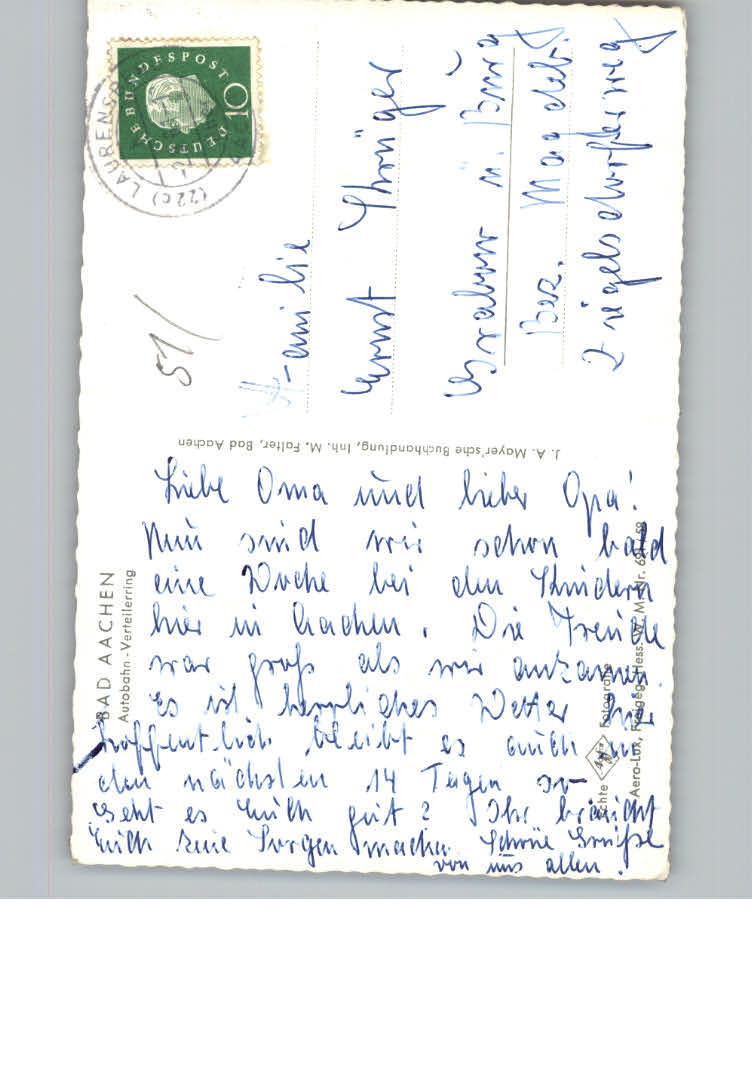 Liebe Oma und lieber Opa!
Nun sind wir schon bald
eine Woche bei den Kindern
hier in Aachen. Die Freude
war groß als wir ankamen.
Es ist herrliches Wetter hier
hoffentlich bleibt es auch in
den nächsten 14 Tagen so-
Geht es Euch gut? Ihr braucht
Euch keine Sorgen machen. Schöne Grüße
von uns allen.
Familie
Ernst
Grabow ü. Burg
Bez. Magdeb.
Ziegelsdorferweg
51/
DEUTSCHE BUNDESPOST
10
(22c) LAURENS
BAD AACHEN
Autobahn-Verteilerring
J. A. Mayer'sche Buchhandlung, Inh. M. Falter, Bad Aachen
Echte Fotografie
Aero-Lux, Freigeg. Hess. W. M. Nr.